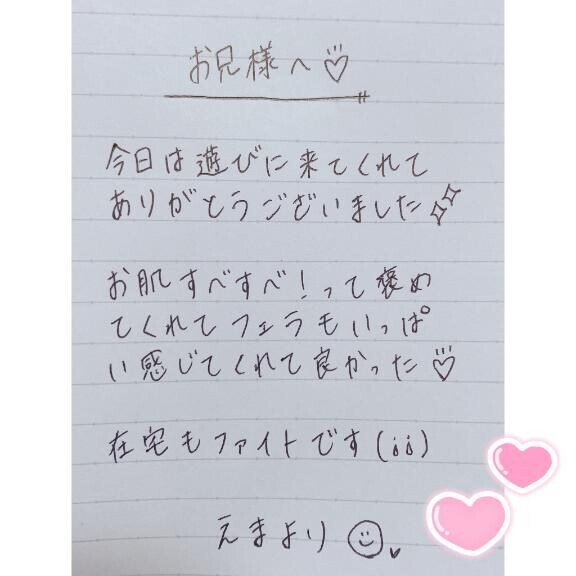 お兄様へ♡
今日は遊びに来てくれて
ありがとうございました✨
お肌すべすべ！って褒め
てくれてフェラもいっぱ
い感じてくれて良かった♡
在宅もファイトです(¡¡)
えまより☺